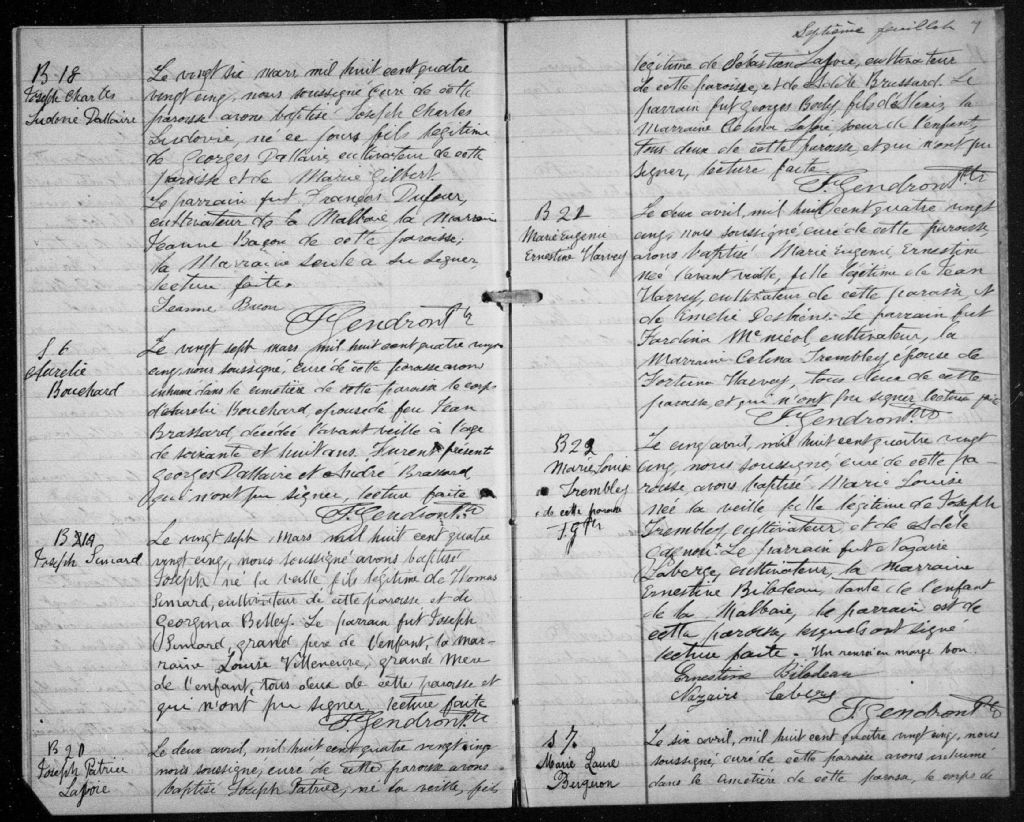 B-18
Joseph Charles
Ludovic Dallaire
Le vingt six mars mil huit cent quatre
vingt cinq, nous soussigné curé de cette
paroisse avons baptisé Joseph Charles
Ludovic, né ce jour, fils légitime
de Georges Dallaire cultivateur de cette
paroisse et de Marie Gilbert
Le parrain fut François Dufour,
cultivateur de la Malbaie la marraine
Jeanne Bacon de cette paroisse,
la Marraine seule a su signer,
lecture faite.
Jeanne Bacon
Gendron Ptre
S 6
Aurélie
Bouchard
Le vingt sept mars mil huit cent quatre vingt
cinq, nous soussigné, curé de cette paroisse avons
inhumé dans le cimetière de cette paroisse le corps
d'Aurélie Bouchard, épouse de feu Jean
Brassard, décédée l'avant veille à l'age
de soixante et huit ans. Furent présent
Georges Dallaire et André Brassard,
qui n'ont pu signer, lecture faite
Gendron Ptre
B 19
Joseph Simard
Le vingt sept, Mars mil huit cent quatre
vingt cinq, nous soussigné avons baptisé
Joseph né la veille fils légitime de Thomas
Simard, cultivateur de cette paroisse et de
Georgina Belley. Le parrain fut Joseph
Simard, grand père de l'enfant, la mar-
raine Louise Villeneuve, grande Mère
de l'enfant, tous deux de cette paroisse et
qui n'ont pu signer, lecture faite
Gendron Ptre
B 20
Joseph Patrice
Lavoie
Le deux avril, mil huit cent quatre vingt cinq
nous soussigné, curé de cette paroisse avons
baptisé Joseph Patrice, né la veille, fils
Septième feuillet 7
légitime de Sébastien Lavoie, cultivateur
de cette paroisse, et de Adèle Brassard. Le
parrain fut Georges Boily fils la
Marraine Célina Lavoie soeur de l'enfant,
tous deux de cette paroisse, et qui n'ont pu
signer, lecture faite
Gendron Ptre
B 21
Marie Eugenie
Ernestine Harvey
Le deux avril, mil huit cent quatre vingt
cinq, nous soussigné, curé de cette paroisse,
avons baptisé Marie Eugenie, Ernestine
née l'avant veille, fille légitime de Jean
Harvey, cultivateur de cette paroisse et
de Emélie Desbiens. Le parrain fut
McNicol cultivateur, la
Marraine Célina Trembley épouse de
Fortuna Harvey, tous deux de cette
paroisse, et qui n'ont pu signer lecture faite
Gendron Ptre
B 22
Marie Louise
Trembley
de cette paroisse
J. G Ptr
Le cinq avril, mil huit cent quatre vingt
cinq, nous soussigné, curé de cette pa-
roisse, avons baptisé Marie Louise
née la veille fille légitime de Joseph
Trembley, cultivateur, et de Adèle
Gagnon. Le parrain fut Nazaire
Laberge, cultivateur, la marraine
Ernestine Bilodeau, tante de l'enfant
de la Malbaie, le parrain est de
cette paroisse, lesquels ont signé
lecture faite. Un renvoi en marge bon.
Ernestine Bilodeau
Nazaire Laberg
F. Gendron Ptre
S 7.
Marie Laure
Bergeron
Le six avril, mil huit cent quatre vingt cinq, nous
soussigné, curé de cette paroisse avons inhumé
dans le cimetière de cette paroisse, le corps de